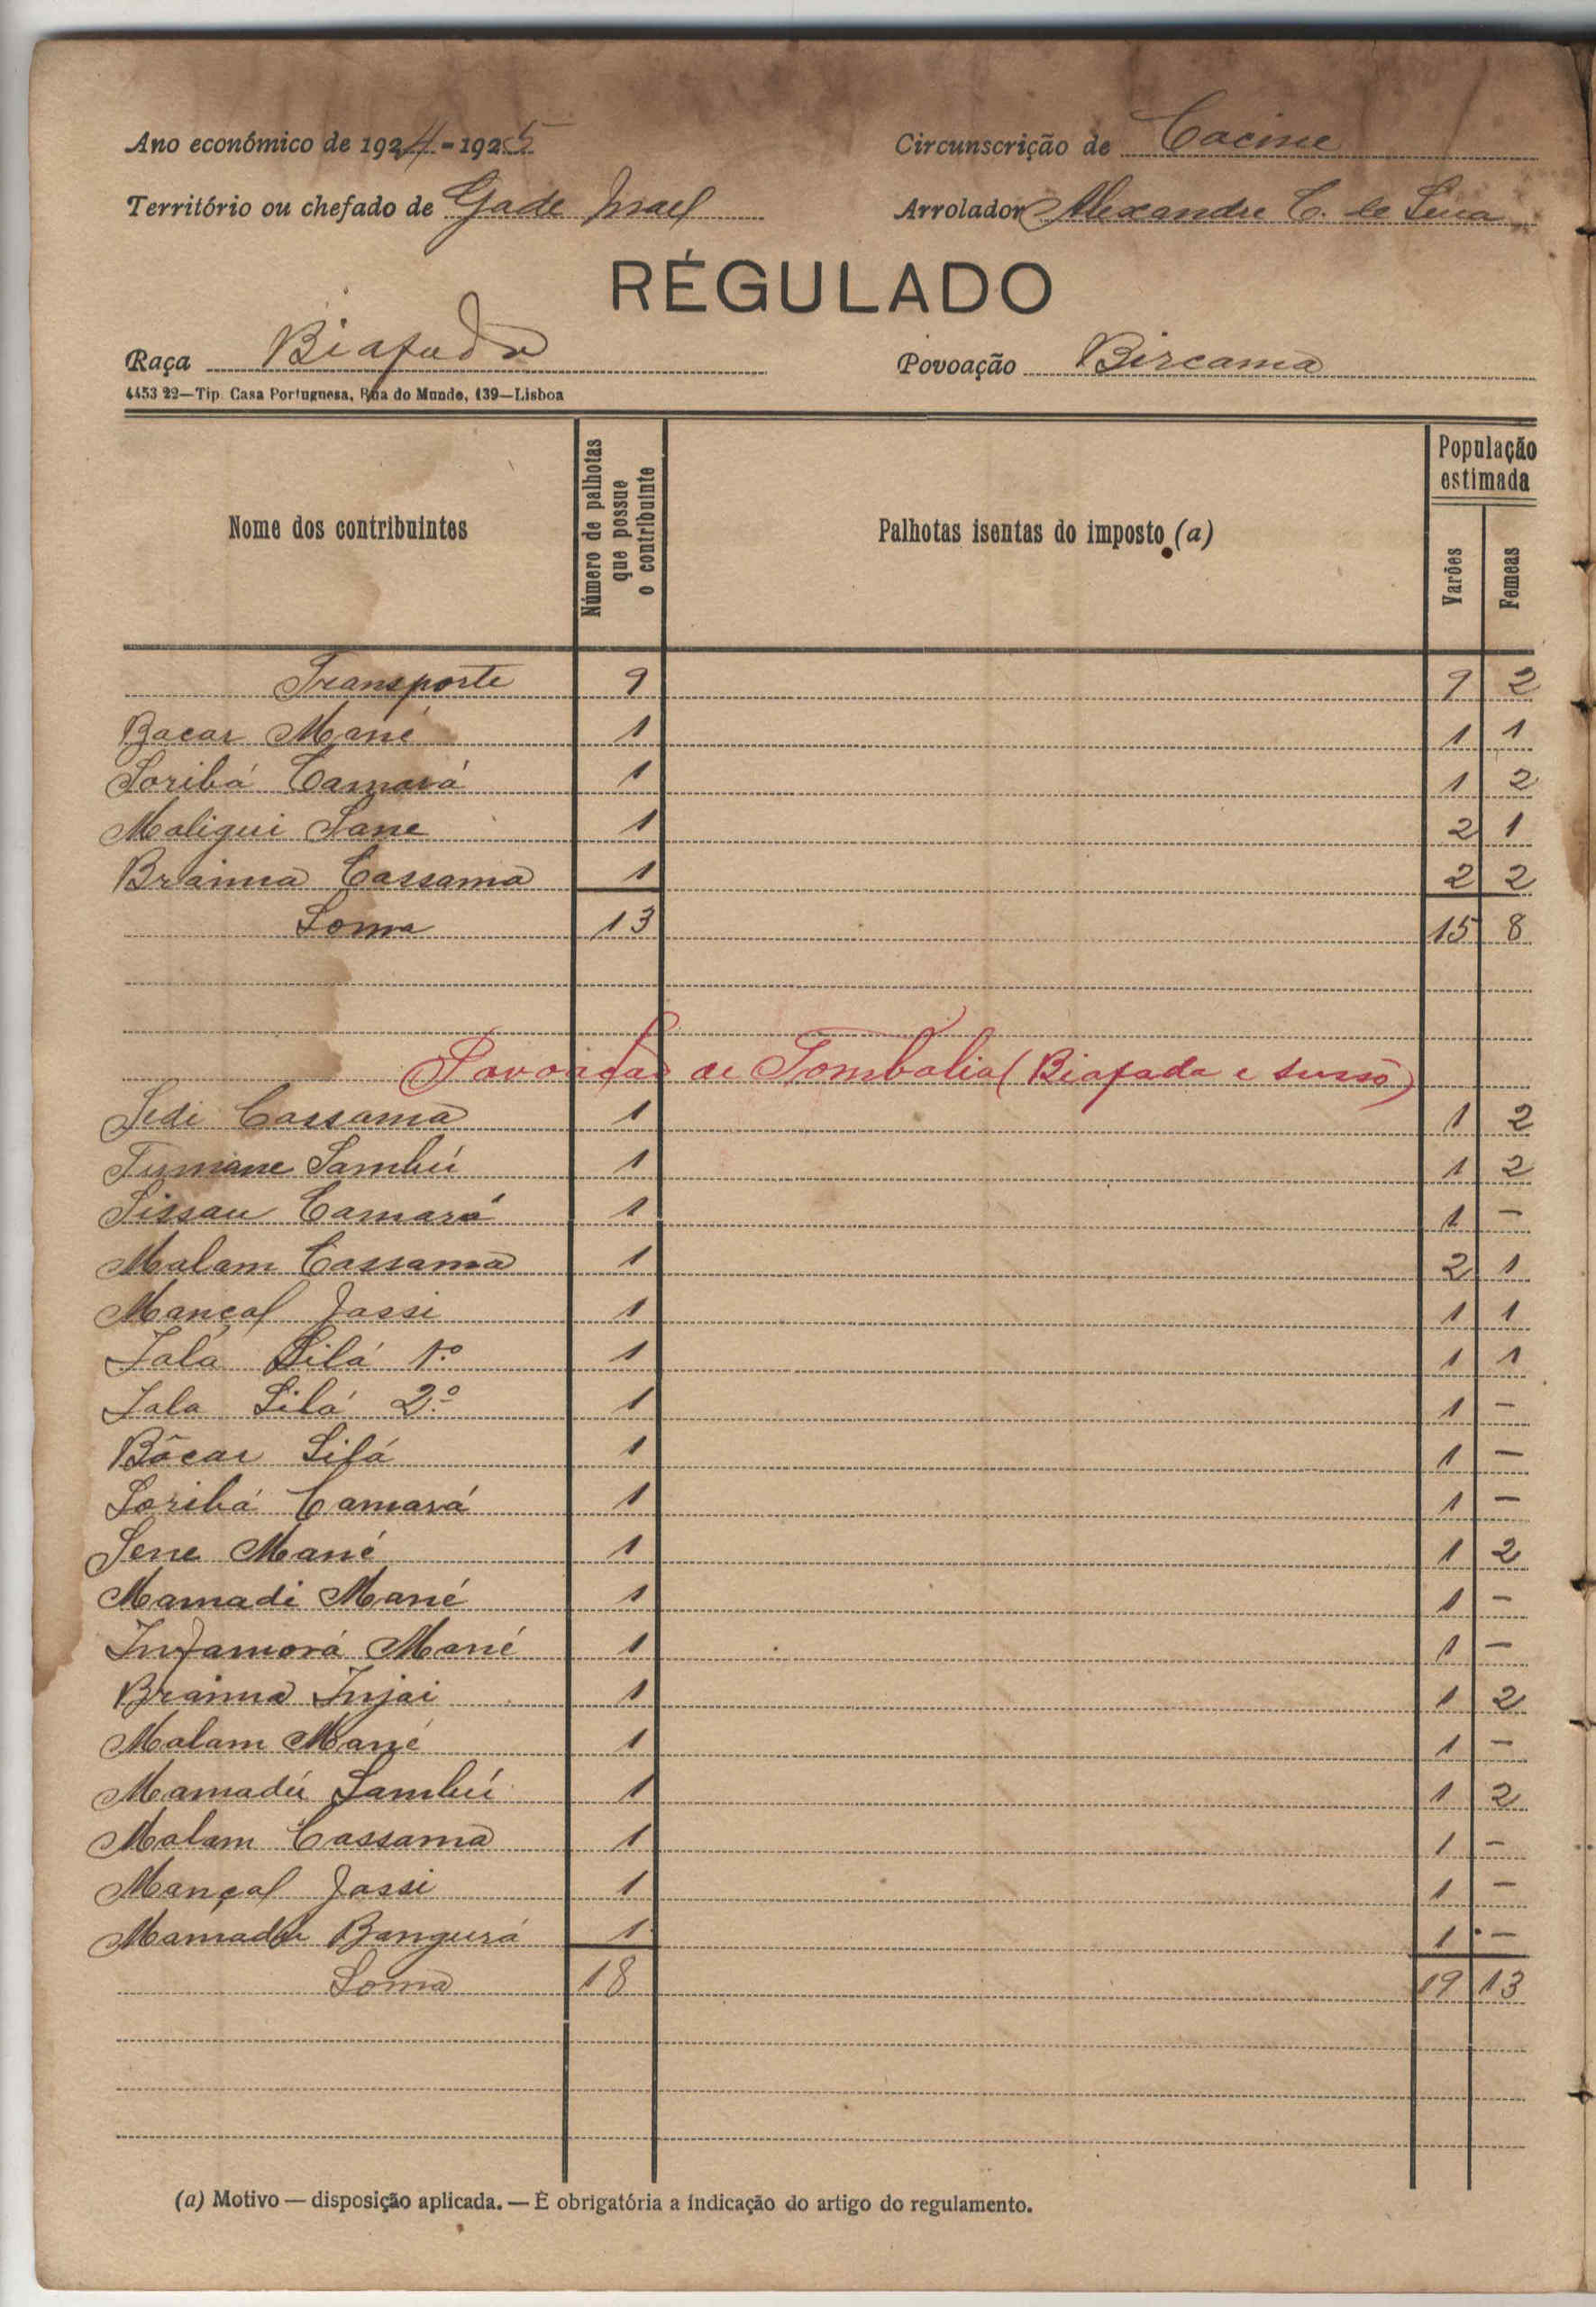 Ano económico de 1924-1925 Circunscrição de Cacine
Território ou chefado de Gade Israel Arrolador Alexandre C. de Sena
RÉGULADO
Raça Biafada Povoação Bircama
4453 22—Tip. Casa Portuguesa, Rua do Mundo, 139—Lisboa
Nome dos contribuintes Número de palhotas que possue o contribuinte Palhotas isentas do imposto (a) População estimada Varões Femeas
Transporte 9 9 2
Bacar Mané 1 1 1
Soribá Camará 1 1 2
Maligui Sane 1 2 1
Braima Cassama 1 2 2
Soma 13 15 8
Povoação de Tombalia (Biafada e sussó)
Sedi Cassama 1 1 2
Tumane Sambú 1 1 2
Sissau Camará 1 1 —
Malam Cassama 1 2 1
Mançal Jassi 1 1 1
Jala Silá 1.º 1 1 1
Jala Silá 2.º 1 1 —
Bácar Silá 1 1 —
Soribá Camará 1 1 —
Sene Mané 1 1 2
Mamadi Mané 1 1 —
Infamorá Mané 1 1 —
Braima Injai 1 1 2
Malam Mané 1 1 —
Mamadú Sambú 1 1 2
Malam Cassama 1 1 —
Mançal Jassi 1 1 —
Mamadú Bangurá 1 1 —
Soma 18 19 13
(a) Motivo — disposição aplicada. — É obrigatória a indicação do artigo do regulamento.